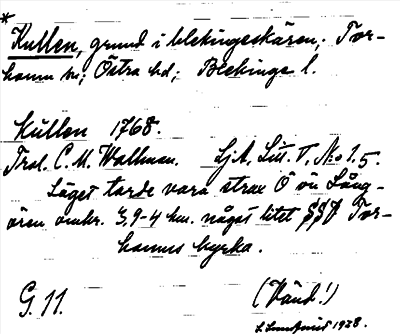 *
Kullen, grund i blekingeskären; Tor-
hamn sn; Östra hd; Blekinge l.
Kullen 1768.
Tral. C. M. Wallman. Lj.A, Litt. V, No 1.5.
Läget torde vara strax Ö om Lång-
ören omkr. 3,9-4 km. något litet SSV Tor-
hamns kyrka.
G. 11. (Vänd!)
1938.